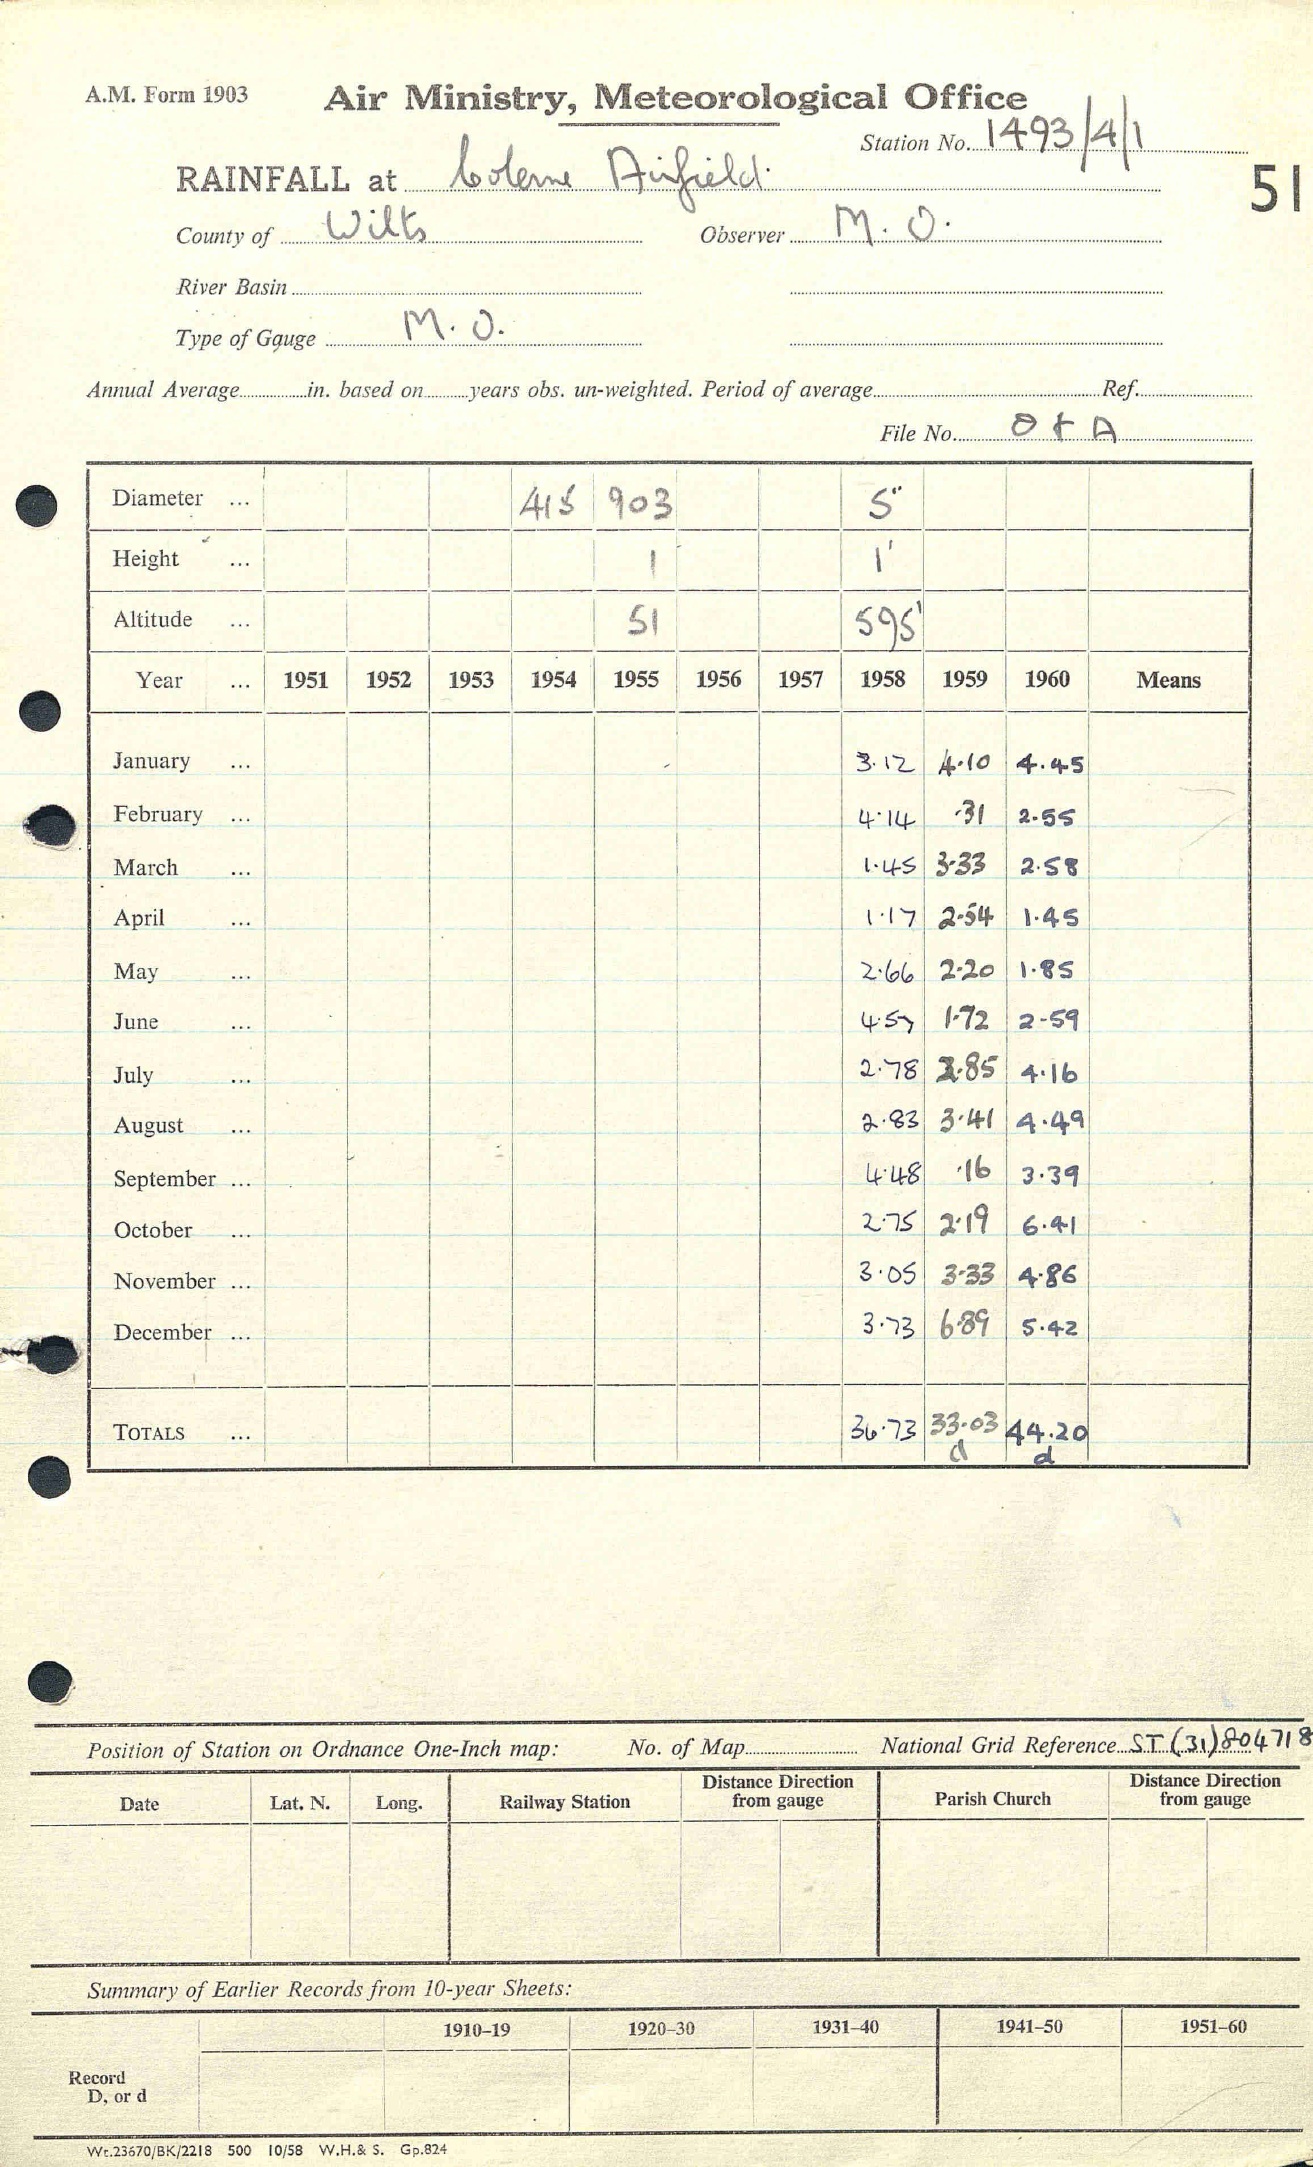 A.M. Form 1903 Air Ministry, Meteorological Office
Station No. 1493/4/1
RAINFALL at Colerne Airfield. 51
County of Wilts Observer M. O.
River Basin
Type of Gauge M. O.
Annual Average in. based on years obs. un-weighted. Period of average Ref.
File No. O & A
Diameter ... 415 903 5"
Height ... 1 1'
Altitude ... 51 595'
Year ... 1951 1952 1953 1954 1955 1956 1957 1958 1959 1960 Means
January ... 3.12 4.10 4.45
February ... 4.14 .31 2.55
March ... 1.45 3.33 2.58
April ... 1.17 2.54 1.45
May ... 2.66 2.20 1.85
June ... 4.57 1.72 2.59
July ... 2.78 2.85 4.16
August ... 2.83 3.41 4.49
September ... 4.48 .16 3.39
October ... 2.75 2.19 6.41
November ... 3.05 3.33 4.86
December ... 3.73 6.89 5.42
TOTALS ... 36.73 33.03 44.20
d d
Position of Station on Ordnance One-Inch map: No. of Map National Grid Reference ST (31) 804718
Date Lat. N. Long. Railway Station Distance Direction from gauge Parish Church Distance Direction from gauge
Summary of Earlier Records from 10-year Sheets:
1910–19 1920–30 1931–40 1941–50 1951–60
Record
D, or d
Wt.23670/BK/2218 500 10/58 W.H.& S. Gp.824